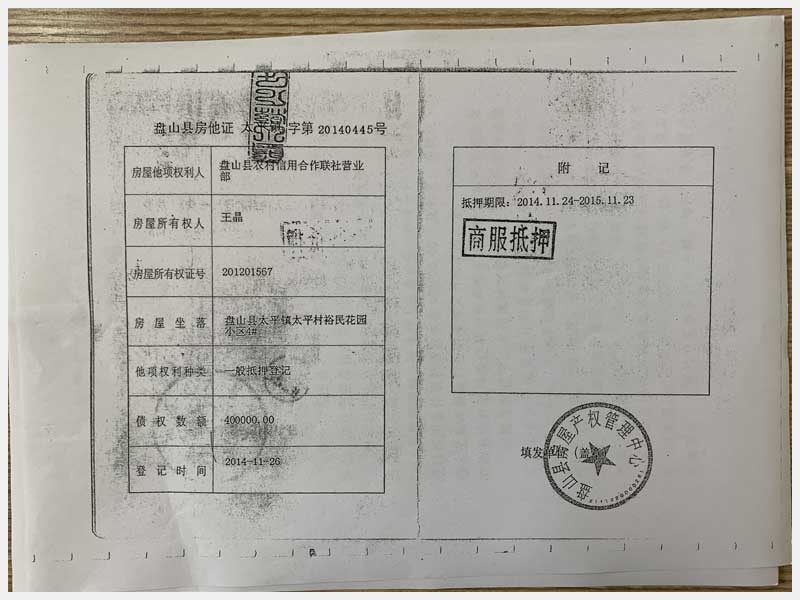 盘山县房他证 太 字第 20140445号
房屋他项权利人 盘山县农村信用合作联社营业
部
房屋所有权人 王晶
房屋所有权证号 201201567
房屋坐落 盘山县太平镇太平村裕民花园
小区4#
他项权利种类 一般抵押登记
债权数额 400000.00
登记时间 2014-11-26
附 记
抵押期限：2014.11.24-2015.11.23
商服抵押
填发单位（盖
盘山县房屋产权管理中心